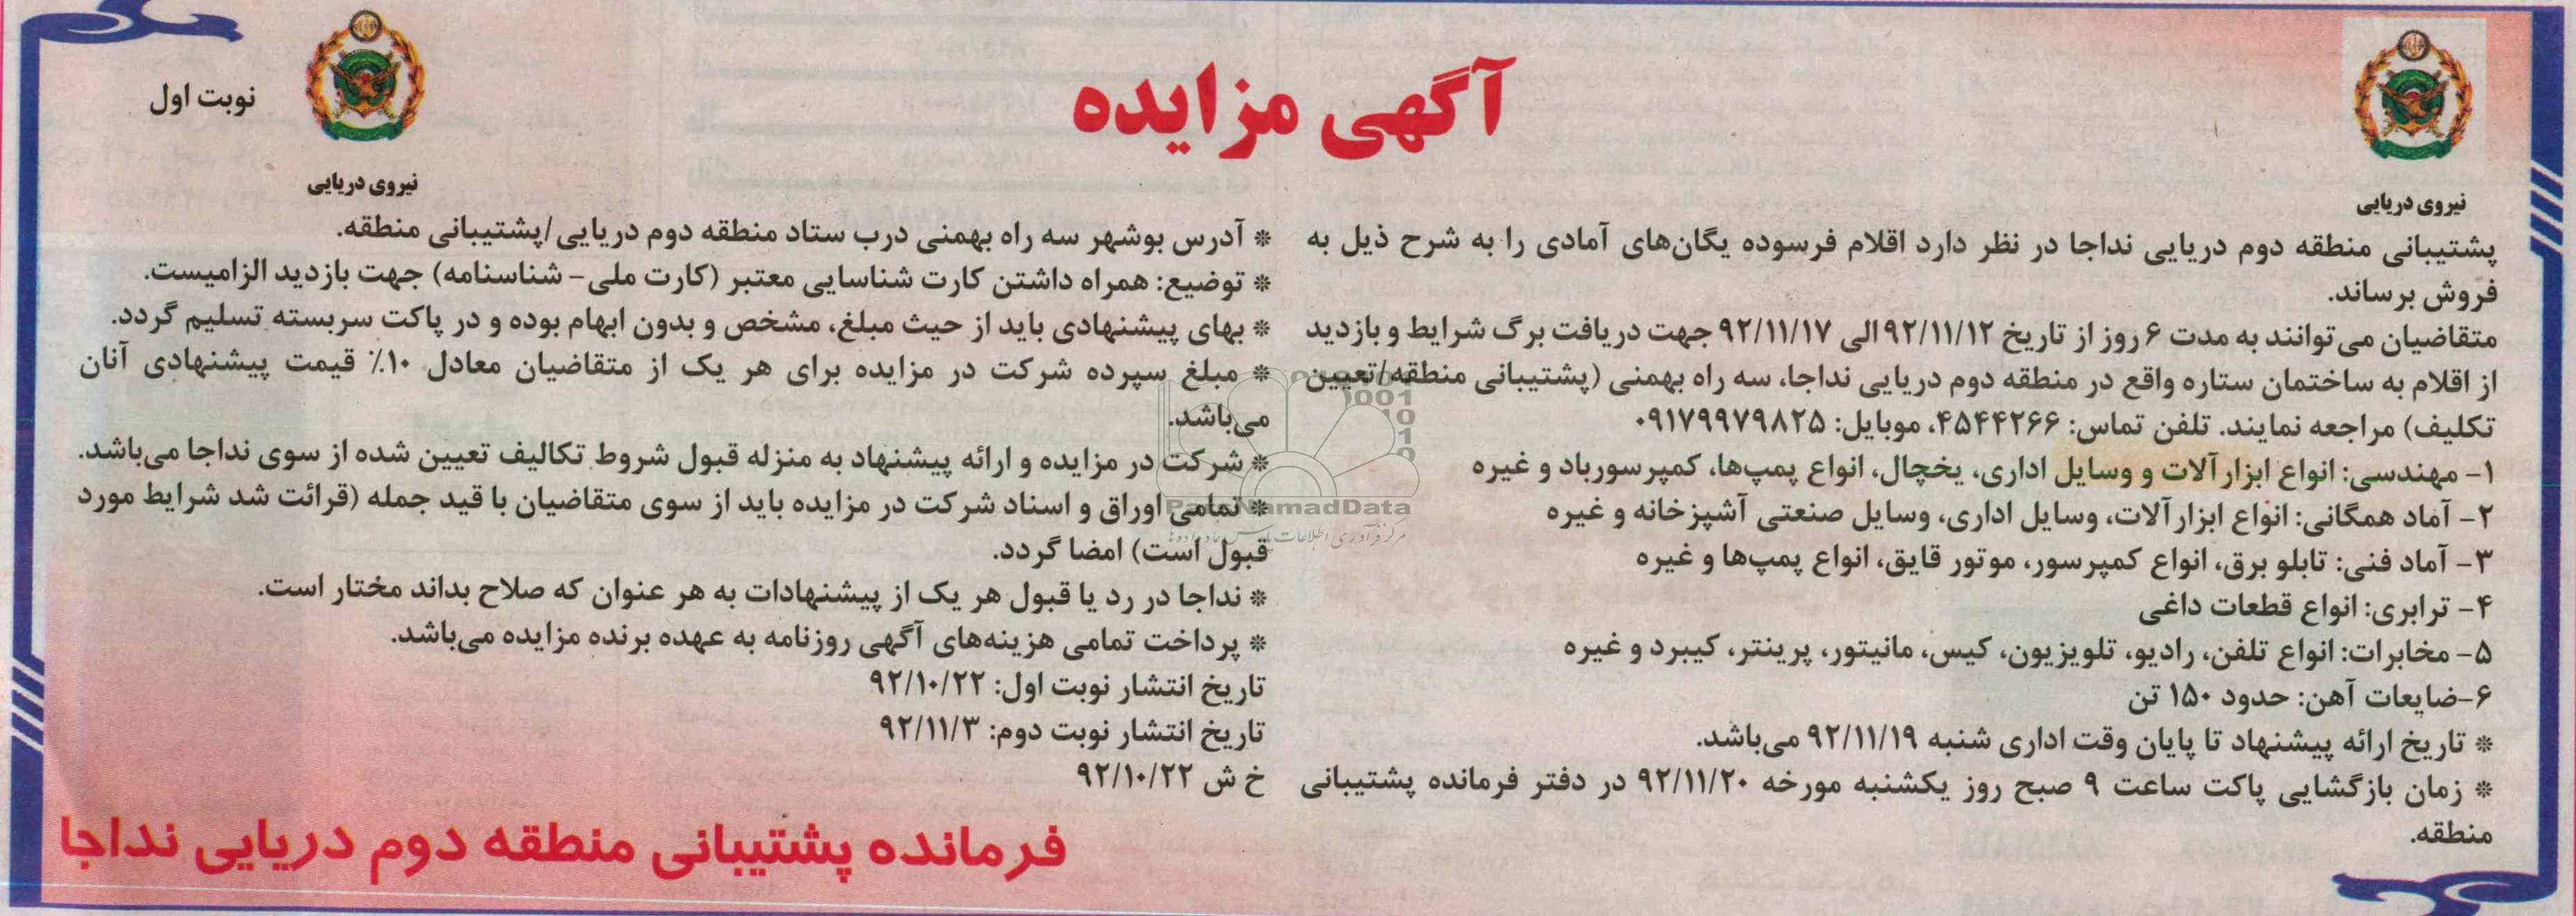 آگهی مزایده
نوبت اول
نیروی دریایی
نیروی دریایی
پشتیبانی منطقه دوم دریایی نداجا در نظر دارد اقلام فرسوده یگان‌های آمادی را به شرح ذیل به
فروش برساند.
متقاضیان می‌توانند به مدت ۶ روز از تاریخ ۹۲/۱۱/۱۲ الی ۹۲/۱۱/۱۷ جهت دریافت برگ شرایط و بازدید
از اقلام به ساختمان ستاره واقع در منطقه دوم دریایی نداجا، سه راه بهمنی (پشتیبانی منطقه/تعیین
تکلیف) مراجعه نمایند. تلفن تماس: ۴۵۴۴۲۶۶، موبایل: ۰۹۱۷۹۹۷۹۸۲۵
۱- مهندسی: انواع ابزارآلات و وسایل اداری، یخچال، انواع پمپ‌ها، کمپرسورباد و غیره
۲- آماد همگانی: انواع ابزارآلات، وسایل اداری، وسایل صنعتی آشپزخانه و غیره
۳- آماد فنی: تابلو برق، انواع کمپرسور، موتور قایق، انواع پمپ‌ها و غیره
۴- ترابری: انواع قطعات داغی
۵- مخابرات: انواع تلفن، رادیو، تلویزیون، کیس، مانیتور، پرینتر، کیبرد و غیره
۶-ضایعات آهن: حدود ۱۵۰ تن
* تاریخ ارائه پیشنهاد تا پایان وقت اداری شنبه ۹۲/۱۱/۱۹ می‌باشد.
* زمان بازگشایی پاکت ساعت ۹ صبح روز یکشنبه مورخه ۹۲/۱۱/۲۰ در دفتر فرمانده پشتیبانی
منطقه.
* آدرس بوشهر سه راه بهمنی درب ستاد منطقه دوم دریایی/پشتیبانی منطقه.
* توضیع: همراه داشتن کارت شناسایی معتبر (کارت ملی- شناسنامه) جهت بازدید الزامیست.
* بهای پیشنهادی باید از حیث مبلغ، مشخص و بدون ابهام بوده و در پاکت سربسته تسلیم گردد.
* مبلغ سپرده شرکت در مزایده برای هر یک از متقاضیان معادل ۱۰٪ قیمت پیشنهادی آنان
می‌باشد.
* شرکت در مزایده و ارائه پیشنهاد به منزله قبول شروط تکالیف تعیین شده از سوی نداجا می‌باشد.
* تمامی اوراق و اسناد شرکت در مزایده باید از سوی متقاضیان با قید جمله (قرائت شد شرایط مورد
قبول است) امضا گردد.
* نداجا در رد یا قبول هر یک از پیشنهادات به هر عنوان که صلاح بداند مختار است.
* پرداخت تمامی هزینه‌های آگهی روزنامه به عهده برنده مزایده می‌باشد.
تاریخ انتشار نوبت اول: ۹۲/۱۰/۲۲
تاریخ انتشار نوبت دوم: ۹۲/۱۱/۳
خ ش ۹۲/۱۰/۲۲
فرمانده پشتیبانی منطقه دوم دریایی نداجا